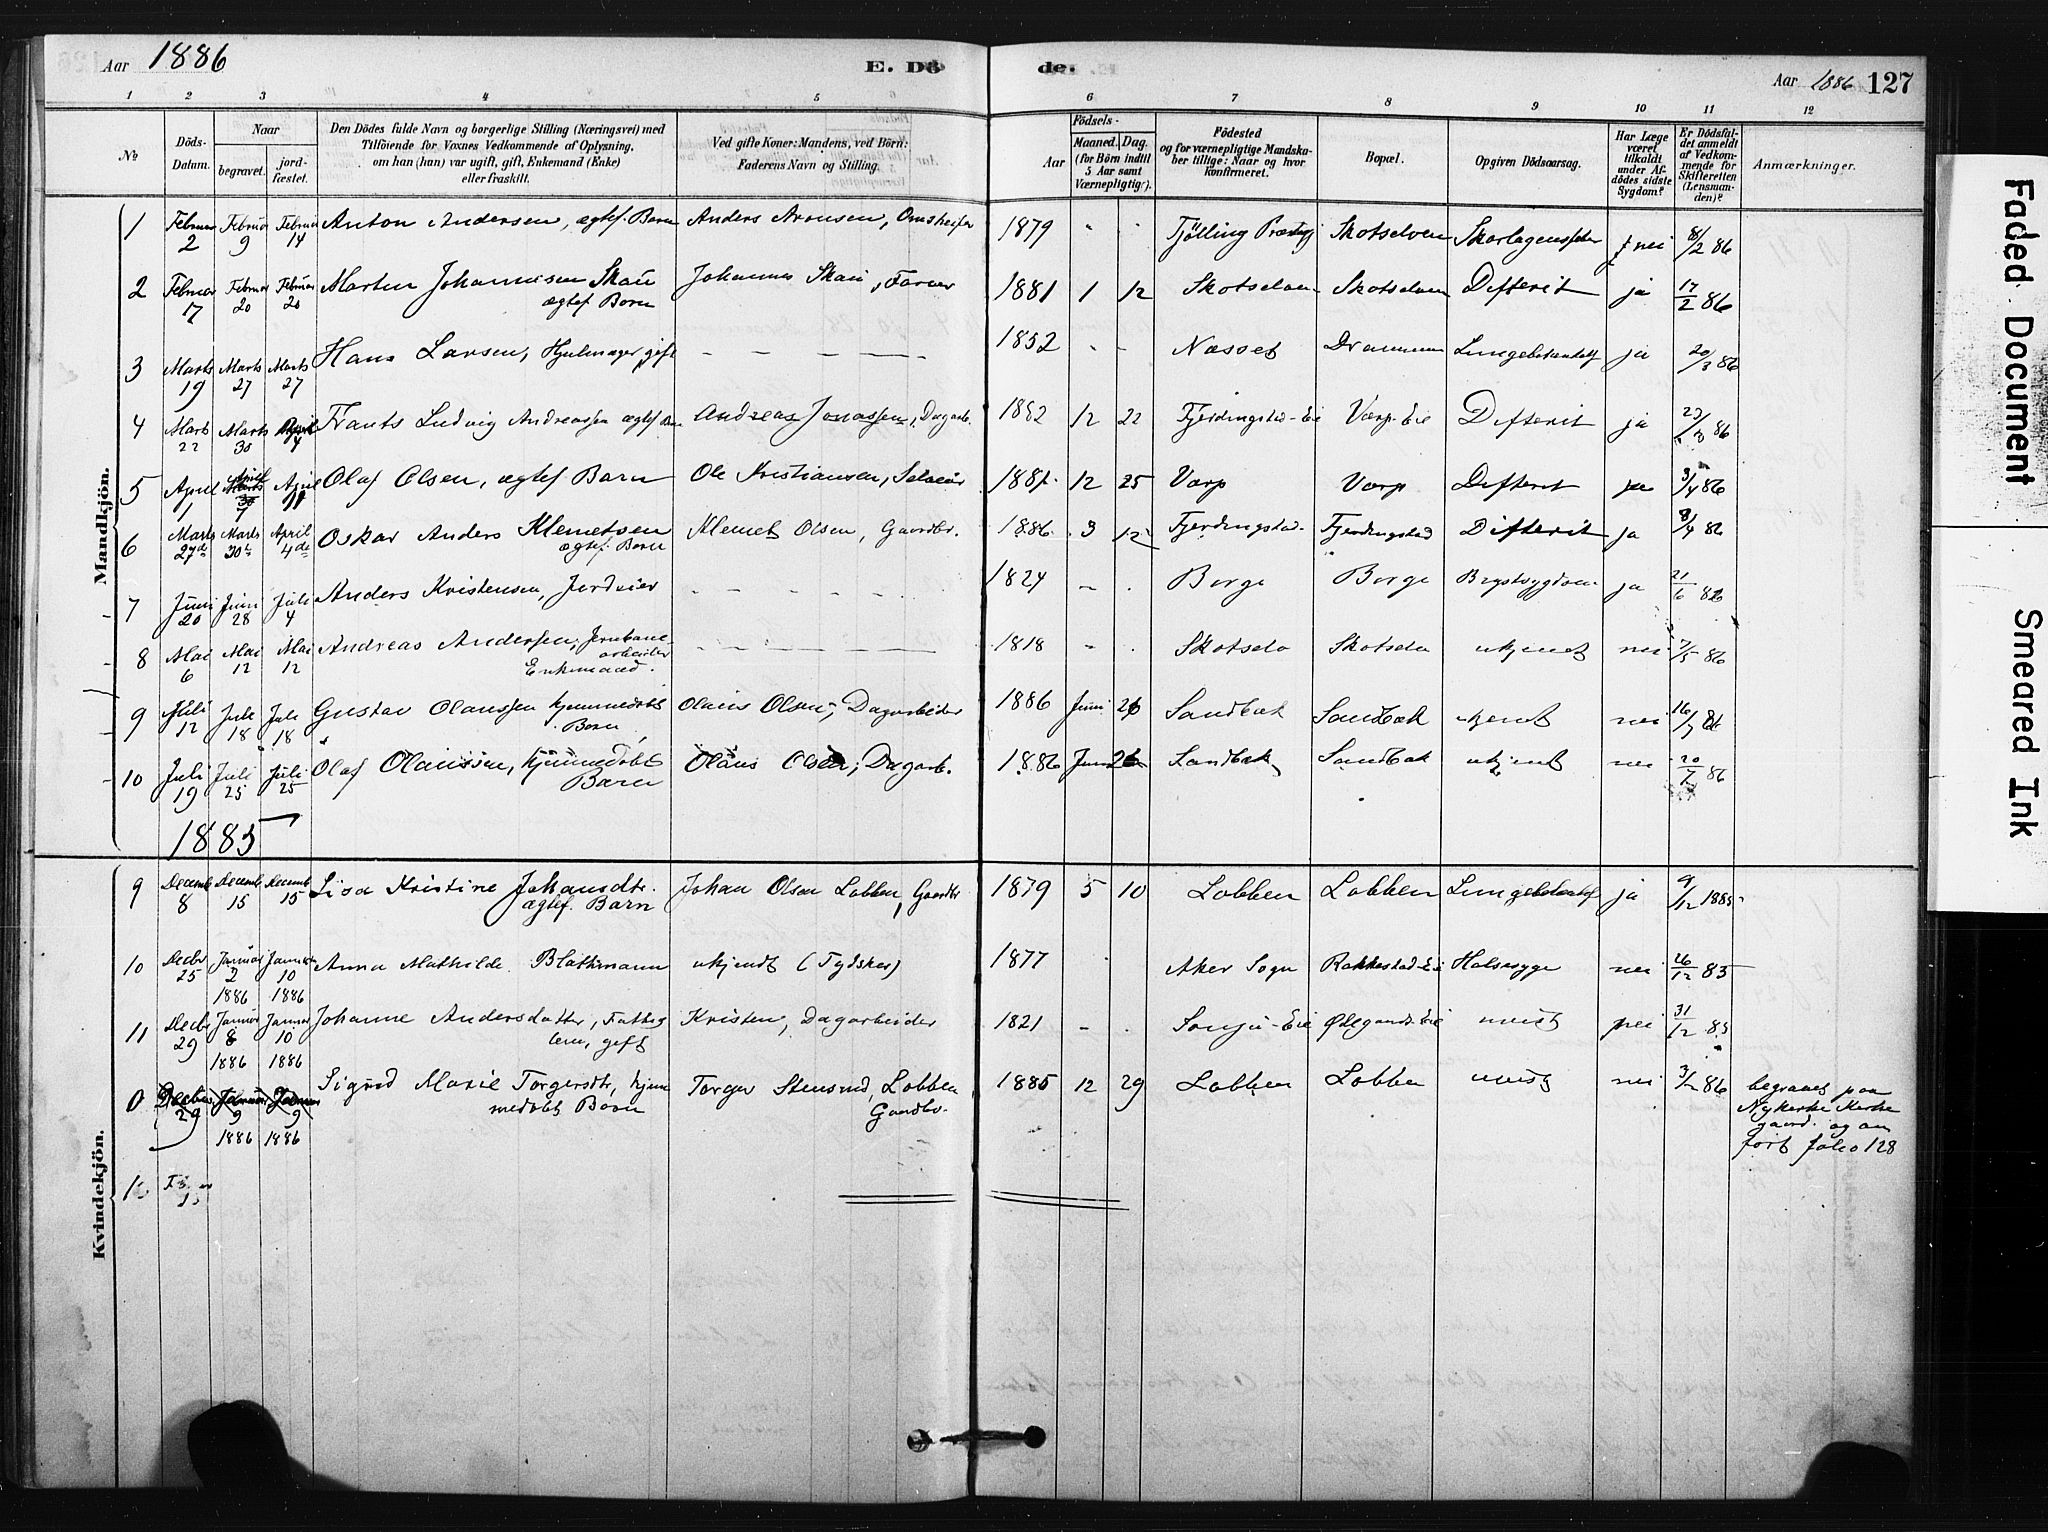 Aar 1886 E. Dö de. Aar 1886 127
1 2 3 4 5 6 7 8 9 10 11 12
No
Döds-Datum.
Naar
begravet.
jord-fæstet.
Den Dödes fulde Navn og borgerlige Stilling (Næringsvei) med
Tilföiende for Voxnes Vedkommende af Oplysning,
om han (hun) var ugift, gift, Enkemand (Enke)
eller fraskilt.
Ved gifte Koner: Mandens, ved Börn:
Faderens Navn og Stilling.
Födsels-
Aar
Maaned. Dag.
(for Börn indtil
5 Aar samt
Værnepligtige).
Födested
og for værnepligtige Mandska-
ber tillige: Naar og hvor
konfirmeret.
Bopæl.
Opgiven Dödsaarsag.
Har Læge
været
tilkaldt
under Af-
dödes sidste
Sygdom?
Er Dödsfal-
det anmeldt
af Vedkom-
mende for
Skifteretten
(Lensman-
den)?
Anmærkninger.
Mandkjön.
1 Februar 2 Februar 9 Februar 14 Anton Andersen, ægtef. Barn Anders Aronsen, 1879 " " Tjölling Skotselven Skarlagensfeber nei 8/2 86
2 Februar 17 Februar 20 Februar 20 Martin Johannesen Skau ægtef Barn Johannes Skau, Farver 1881 1 12 Skotselven Skotselven Difterit ja 17/2 86
3 Marts 19 Marts 27 Marts 27 Hans Larsen, Hjulmager, gift — — — — — 1852 - - Næsset Drammen Lungebetændelse ja 20/3 86
4 Marts 22 Marts 30 April 4 Frants Ludvig Andreassen ægtef Barn Andreas Jonassen, Dagarb. 1882 12 22 Fjerdingstad-Eie Varp-Eie Difterit ja 23/3 86
5 April 1 April 7 April 11 Olaf Olsen, ægtef Barn Ole Kristiansen, Selveier 1881 12 25 Varp Varp Difterit ja 3/4 86
6 Marts 27de Marts 30te April 4de Oskar Anders Klemetsen ægtef. Barn Klemet Olsen, Gaardbr. 1886 3 12 Fjerdingstad Fjerdingstad Difterit ja 8/4 86
7 Juni 20 Juni 28 Juli 4 Anders Kristensen, Jordeier - - - - - 1824 - . Borge Borge Brystsygdom ja 21/6 86
8 Mai 6 Mai 12 Mai 12 Andreas Andersen, Jernbane-arbeider Enkemand. - - - - - 1818 - . Skotselv Skotselv ukjendt nei 7/5 86
9 Juli 12 Juli 18 Juli 18 Gustav Olaussen hjemmedöbt Barn Olaus Olsen, Dagarbeider 1886 Juni 26 Sandbæk Sandbæk ukjent nei 16/7 86
10 Juli 19 Juli 25 Juli 25 Olaf Olaussen, hjemmedöbt Barn Olaus Olsen, Dagarb. 1886 Juni 26 Sandbæk Sandbæk ukjent nei 20/7 86
1885
Kvindekjön.
9 Decemb 8 Decemb 15 Decemb 15 Lisa Kristine Johansdtr. ægtef. Barn Johan Olsen Lobben, Gaardbr 1879 5 10 Lobben Lobben Lungebetændelse ja 9/12 1885
10 Decbr 25 Januar 2 1886 Januar 10 1886 Anna Mathilde Blathmann ukjendt (Tydsker) 1877 Aker Sogn Rakkestad-Eie Halssyge nei 26/12 85
11 Decbr 29 Januar 8 1886 Januar 10 1886 Johanne Andersdatter, Fattig lem, gift Kristen, Dagarbeider 1821 - . Sonju-Eie Ødegaard-Eie uvist nei 31/12 85
0 Decbr 29 Januar 9 1886 Januar 9 1886 Sigrid Marie Torgersdtr, hjem medöbt Barn Torger Stensrud, Lobben Gaardbr. 1885 12 29 Lobben Lobben uvist nei 3/1 86 begravet paa
Nykirke Kirke
gaard. og an
fört folio 128
Faded Document
Smeared Ink